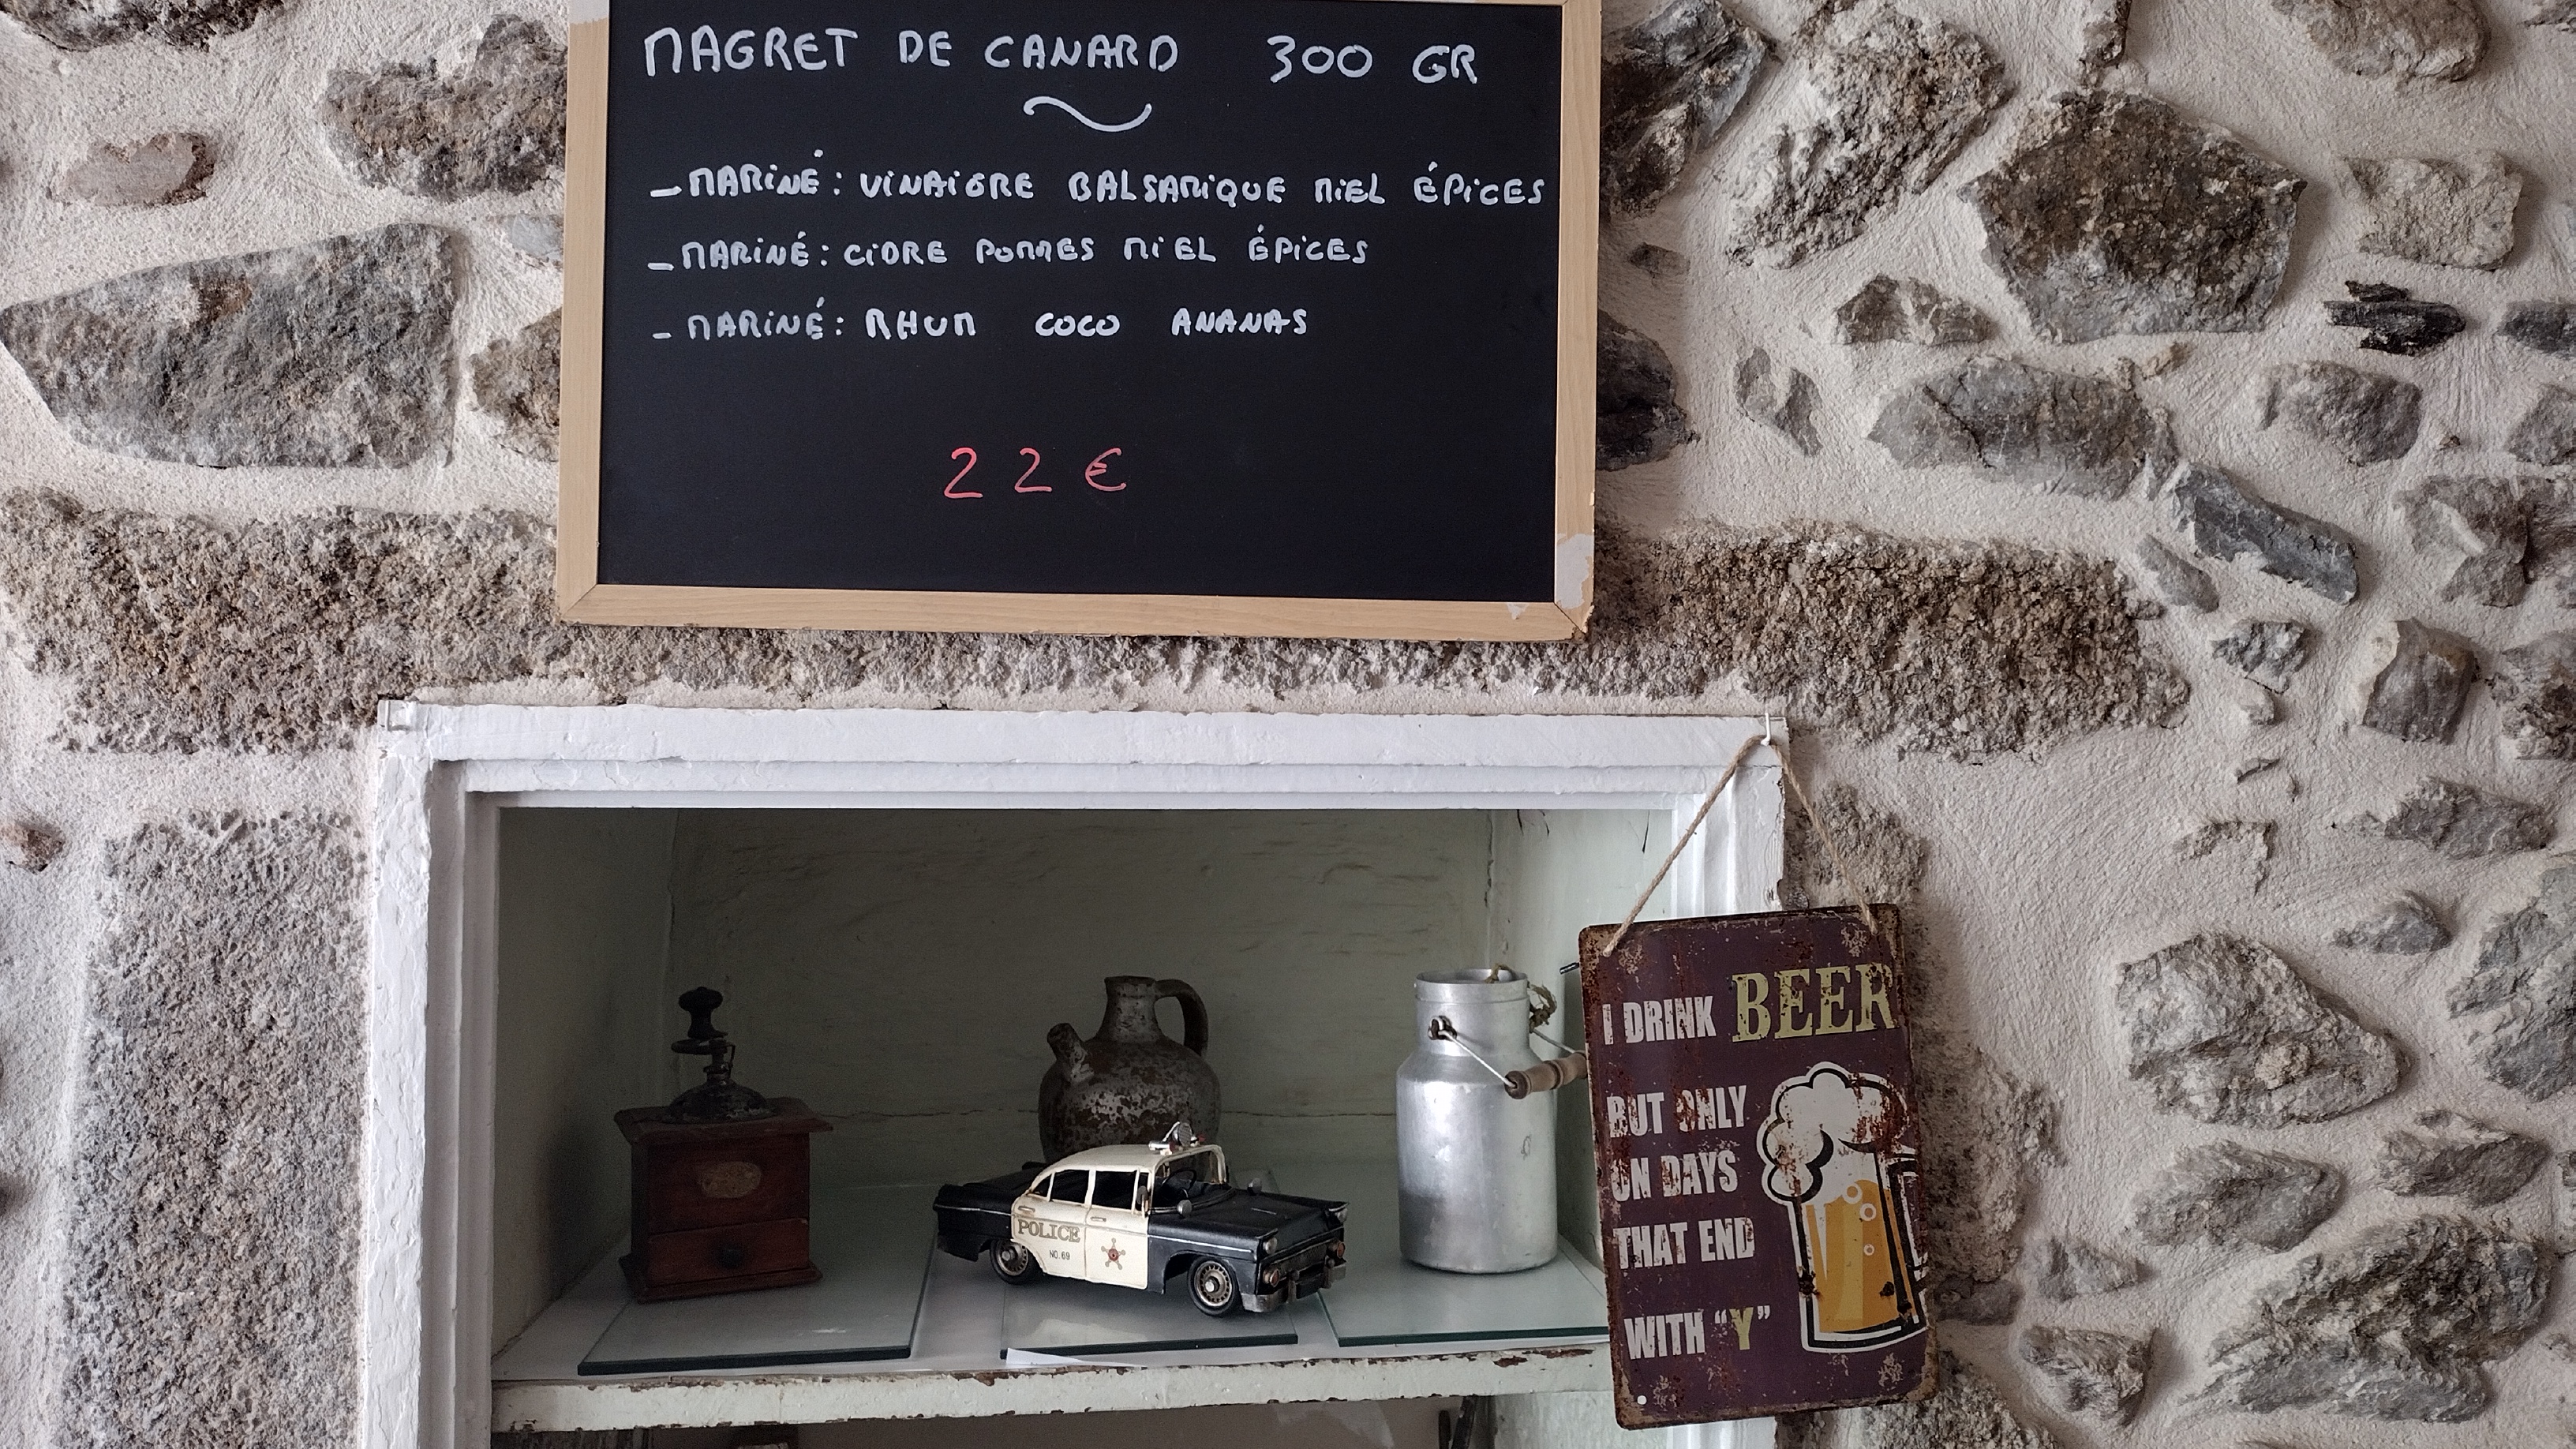 MAGRET DE CANARD 300 GR
- MARINÉ : VINAIGRE BALSAMIQUE MIEL ÉPICES
- MARINÉ : CIDRE POMMES MIEL ÉPICES
- MARINÉ : RHUM COCO ANANAS
22 €
POLICE
NO. 69
I DRINK BEER
BUT ONLY
ON DAYS
THAT END
WITH "Y"